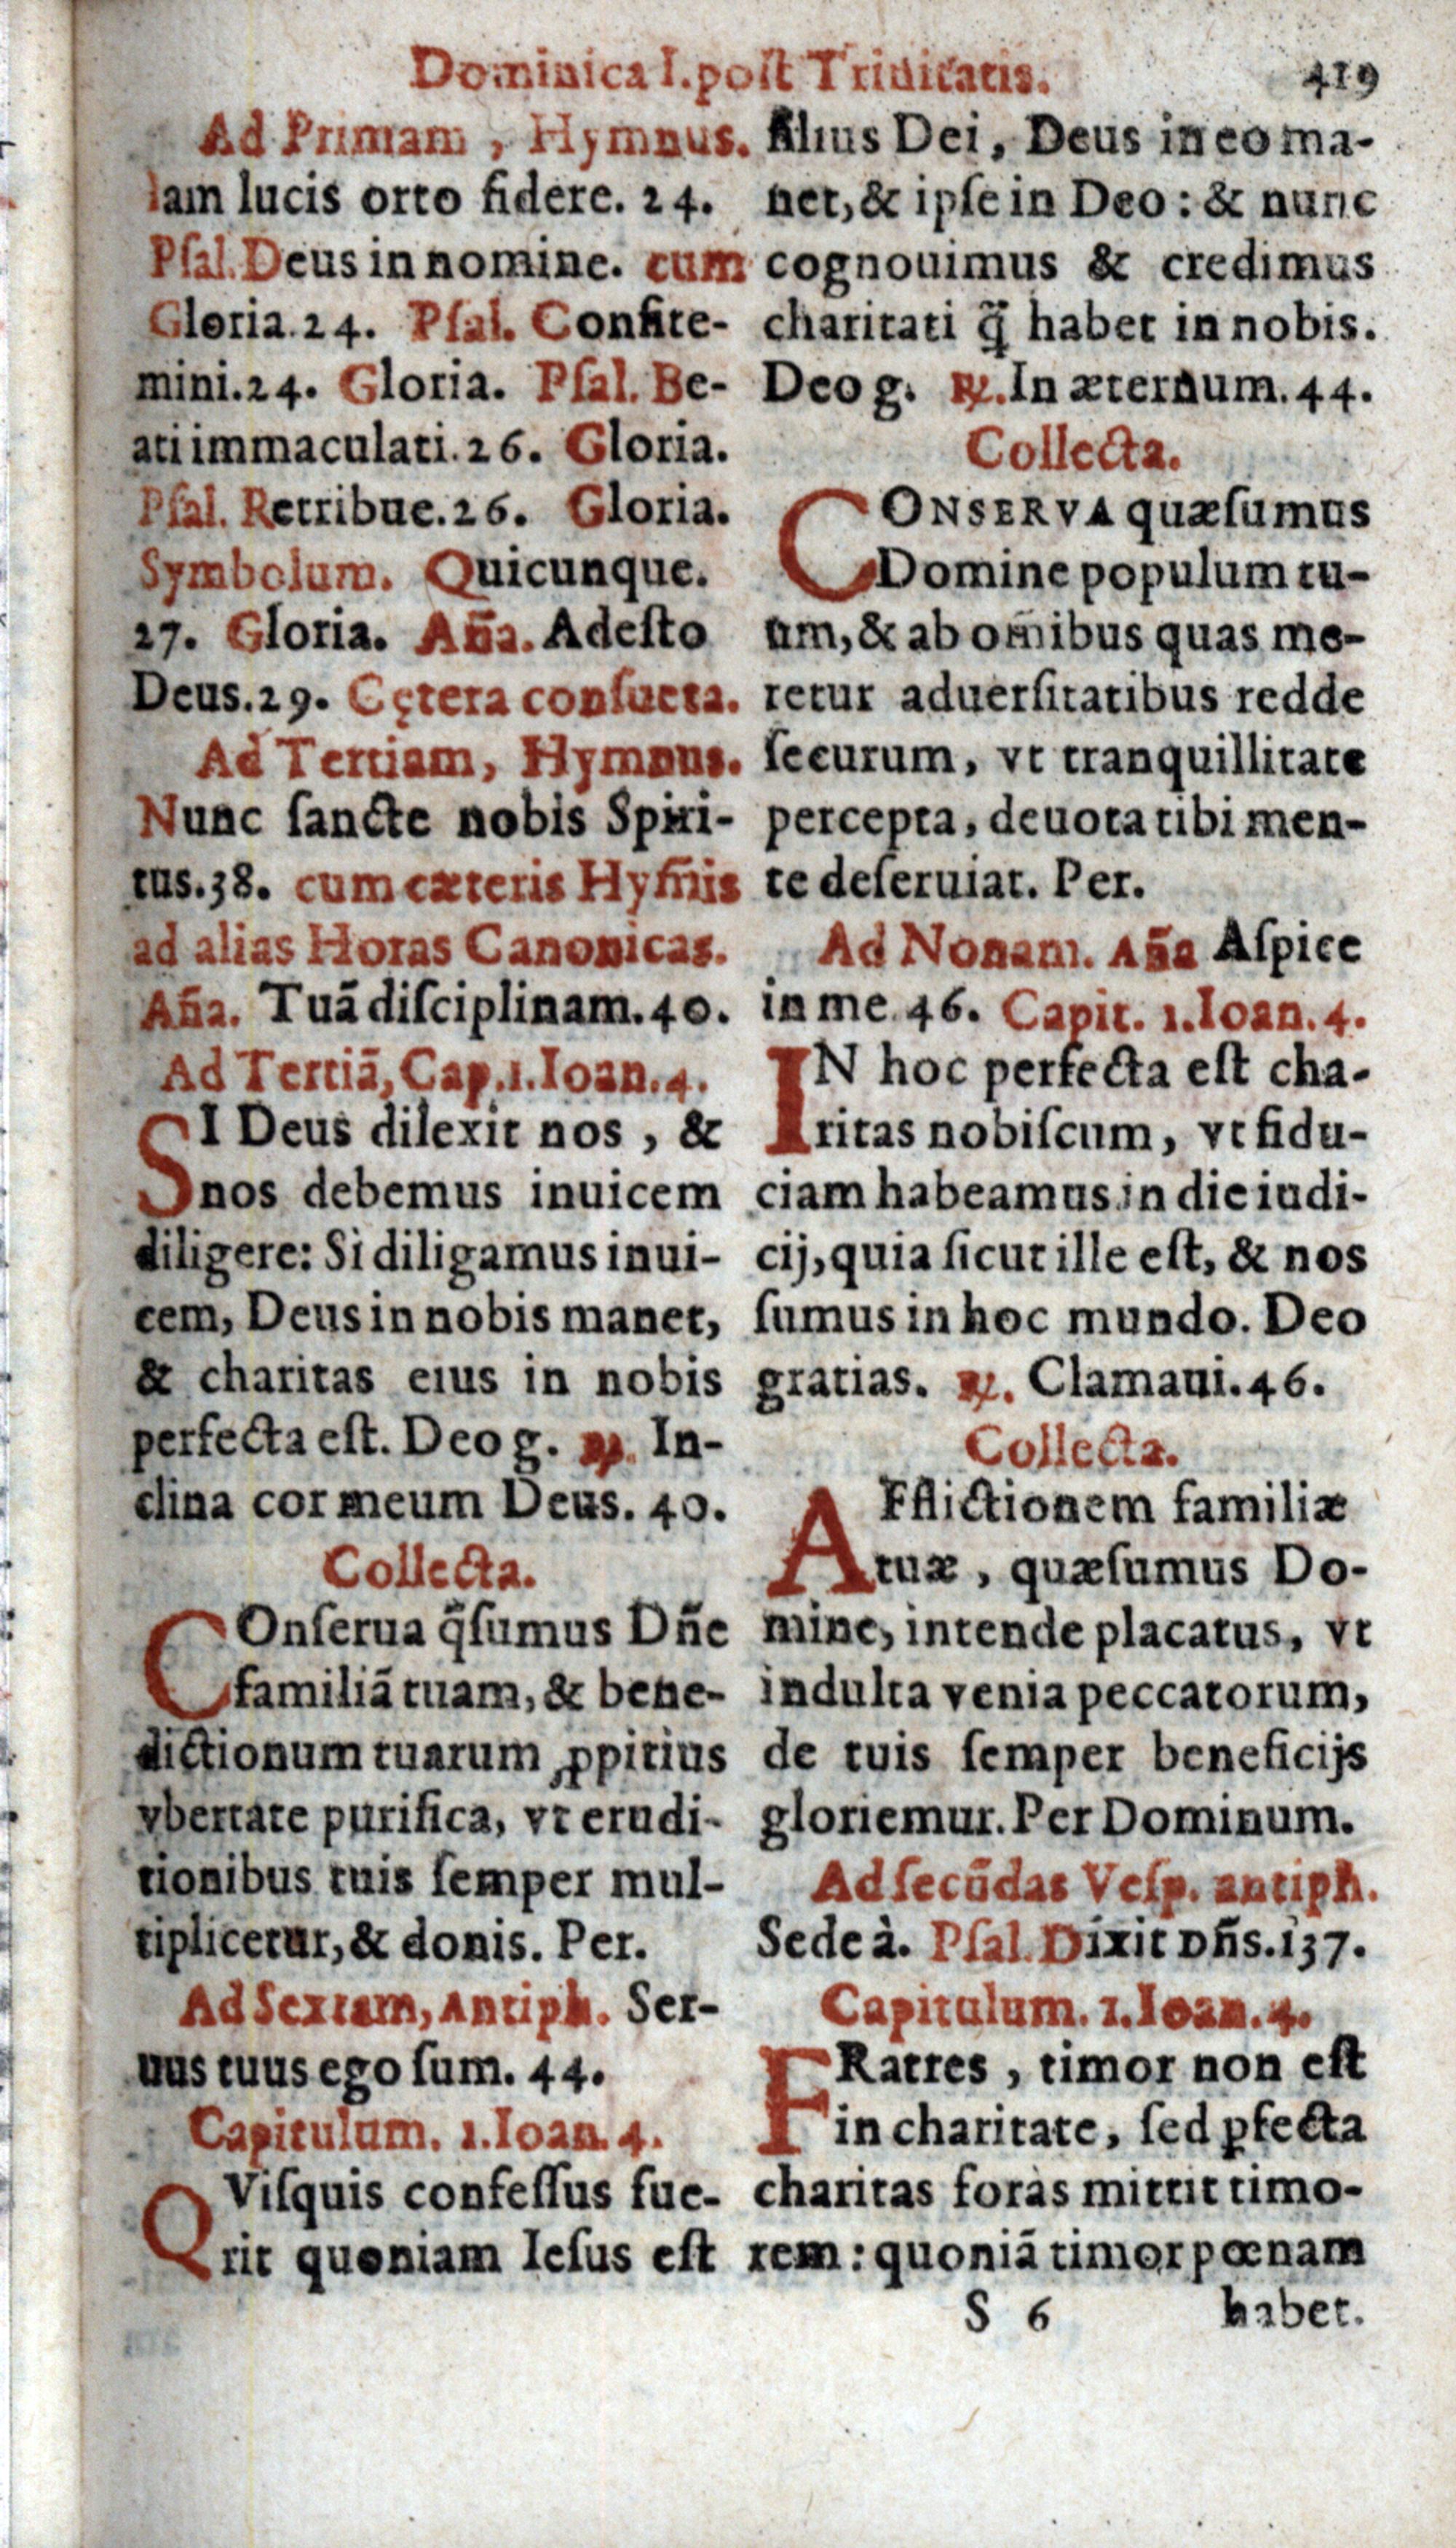 Dominica I. post Trinitatis. 419
Ad Primam, Hymnus.
Iam lucis orto sidere. 24.
Psal. Deus in nomine. cum
Gloria. 24. Psal. Confite-
mini. 24. Gloria. Psal. Be-
ati immaculati. 26. Gloria.
Psal. Retribue. 26. Gloria.
Symbolum. Quicunque.
27. Gloria. Aña. Adeſto
Deus. 29. Cętera conſueta.
Ad Tertiam, Hymnus.
Nunc ſancte nobis Spiri-
tus. 38. cum cæteris Hym̃is
ad alias Horas Canonicas.
Aña. Tuã diſciplinam. 40.
Ad Tertiã, Cap. 1. Ioan. 4.
SI Deus dilexit nos, &
nos debemus inuicem
diligere: Si diligamus inui-
cem, Deus in nobis manet,
& charitas eius in nobis
perfecta eſt. Deo g. ℟. In-
clina cor meum Deus. 40.
Collecta.
COnſerua q̃ſumus Dñe
familiã tuam, & bene-
dictionum tuarum ꝓpitius
vbertate purifica, vt erudi-
tionibus tuis ſemper mul-
tiplicetur, & donis. Per.
Ad Sextam, Antiph. Ser-
uus tuus ego ſum. 44.
Capitulum. 1. Ioan. 4.
QViſquis confeſſus fue-
rit quoniam Ieſus eſt
filius Dei, Deus in eo ma-
net, & ipſe in Deo: & nunc
cognouimus & credimus
charitati q̃ habet in nobis.
Deo g. ℟. In æternum. 44.
Collecta.
CONSERVA quæſumus
Domine populum tu-
um, & ab om̃ibus quas me-
retur aduerſitatibus redde
ſecurum, vt tranquillitate
percepta, deuota tibi men-
te deſeruiat. Per.
Ad Nonam. Aña Aſpice
in me. 46. Capit. 1. Ioan. 4.
IN hoc perfecta eſt cha-
ritas nobiſcum, vt fidu-
ciam habeamus in die iudi-
cij, quia ſicut ille eſt, & nos
ſumus in hoc mundo. Deo
gratias. ℟. Clamaui. 46.
Collecta.
AFflictionem familiæ
tuæ, quæſumus Do-
mine, intende placatus, vt
indulta venia peccatorum,
de tuis ſemper beneficijs
gloriemur. Per Dominum.
Ad ſecũdas Veſp. antiph.
Sede à. Pſal. Dixit Dñs. 137.
Capitulum. 1. Ioan. 4.
FRatres, timor non eſt
in charitate, ſed ꝑfecta
charitas foràs mittit timo-
rem: quoniã timor pœnam
S 6 habet.